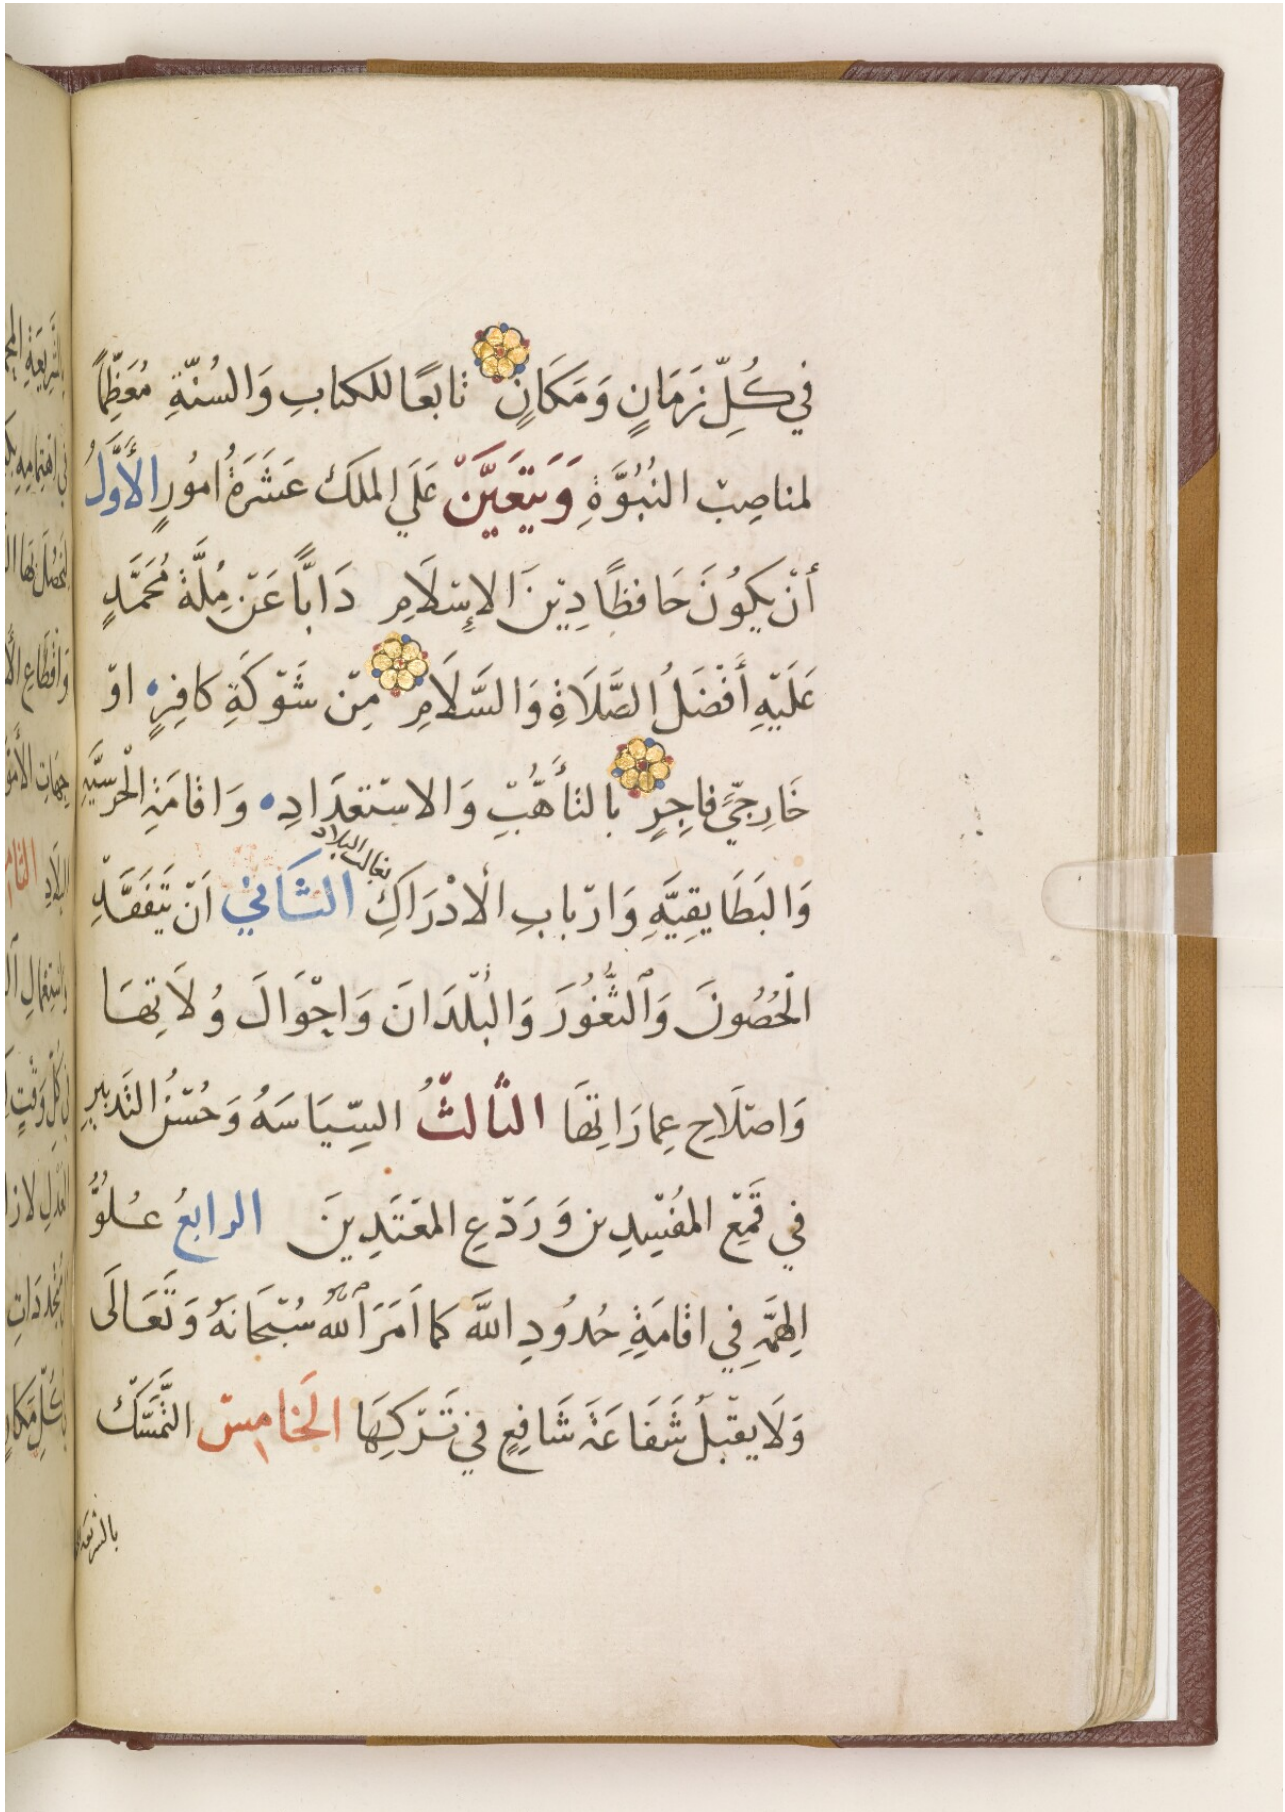 في كُلِّ زَمَانٍ وَمَكَانٍ تابعًا للكتابِ وَالسُنَّةِ مُعَظِّمًا
لمناصِبْ النُبُوَّةِ وَيَتَعَيَّنْ عَلَي الملَك عَشَرَةُ امُورٍ الأَوَّلُ
أنْ يَكُونَ حَافظًا دِيْنَ الإِسْلَامِ دَابًّا عَنْ مِلَّةَ مُحَمَّدٍ
عَلَيْهِ أَفْضَلُ الصَّلَاةِ وَالسَّلَامِ مِنْ شَوْكَةِ كافِرٍ اوْ
خَارِجّيٍ فاجِرٍ بالتأَهُّبْ وَالاسْتعْدَادِ وَاقامَةِ الْحَرسيَّهِ
بغالب البلاد
وَالبَطَايقِيَّهِ وَارْبابِ الْادْرَاكِ الثَّاني اَنْ يَتَفَقَّدِ
الْحُصُونَ وَالثُّغُورَ وَالْبُلْدَانَ وَاحْوَالَ وُلَاتِهَا
وَاصْلَاحِ عِمارَاتِهَا الثالثُ السِّيَاسَهُ وَحُسْنُ التَدْبيرِ
في قَمْعِ المفُسِدِين وَرَدْعِ المعْتَدِينَ الرابعُ عُلوُّ
الِهمَّهِ فِي اقامَةِ حُدُودِ اللَّه كما اَمَرَ اللَّهُ سُبْحَانَهُ وَتَعَالَى
وَلَا يقْبَلُ شَفَاعَةَ شَافِعٍ في تَرْكِهَا الَخامِسْ التَّمَسُّكْ
بالشريعة